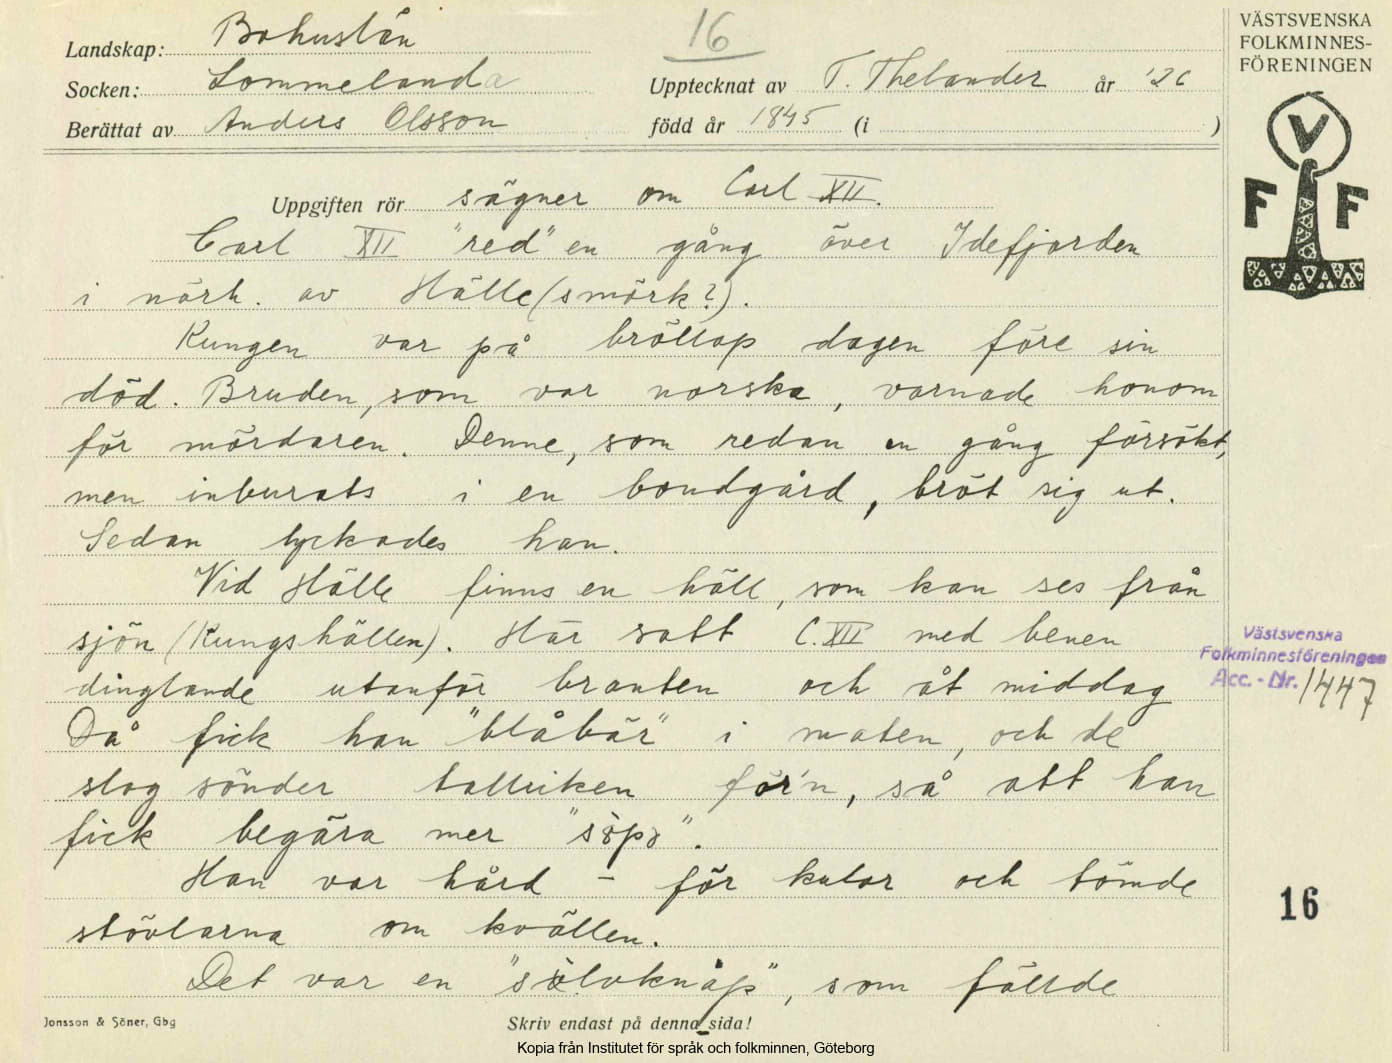 Landskap: Bohuslän
16
Socken: Lommelanda
Upptecknat av T. Thelander år '26
Berättat av Anders Olsson
född år 1845 (i )
VÄSTSVENSKA
FOLKMINNES-
FÖRENINGEN
V
F F
Uppgiften rör sägner om Carl XII.
Carl XII "red" en gång över Idefjorden
i närh. av Hälle (smörk?).
Kungen var på bröllop dagen före sin
död. Bruden, som var norska, varnade honom
för mördaren. Denne, som redan en gång försökt,
men inburats i en bondgård, bröt sig ut.
Sedan lyckades han.
Vid Hälle finns en häll, som kan ses från
sjön (Kungshällen). Här satt C. XII med benen
dinglande utanför branten och åt middag
Då fick han "blåbär" i maten, och de
slog sönder talliken för'n, så att han
fick begära mer "söpo".
Han var hård – för kulor och tömde
stövlarna om kvällen.
Det var en "sölvknåp", som fällde
Västsvenska
Folkminnesföreningen
Acc. - Nr. 1447
16
Jonsson & Söner, Gbg
Skriv endast på denna sida!
Kopia från Institutet för språk och folkminnen, Göteborg